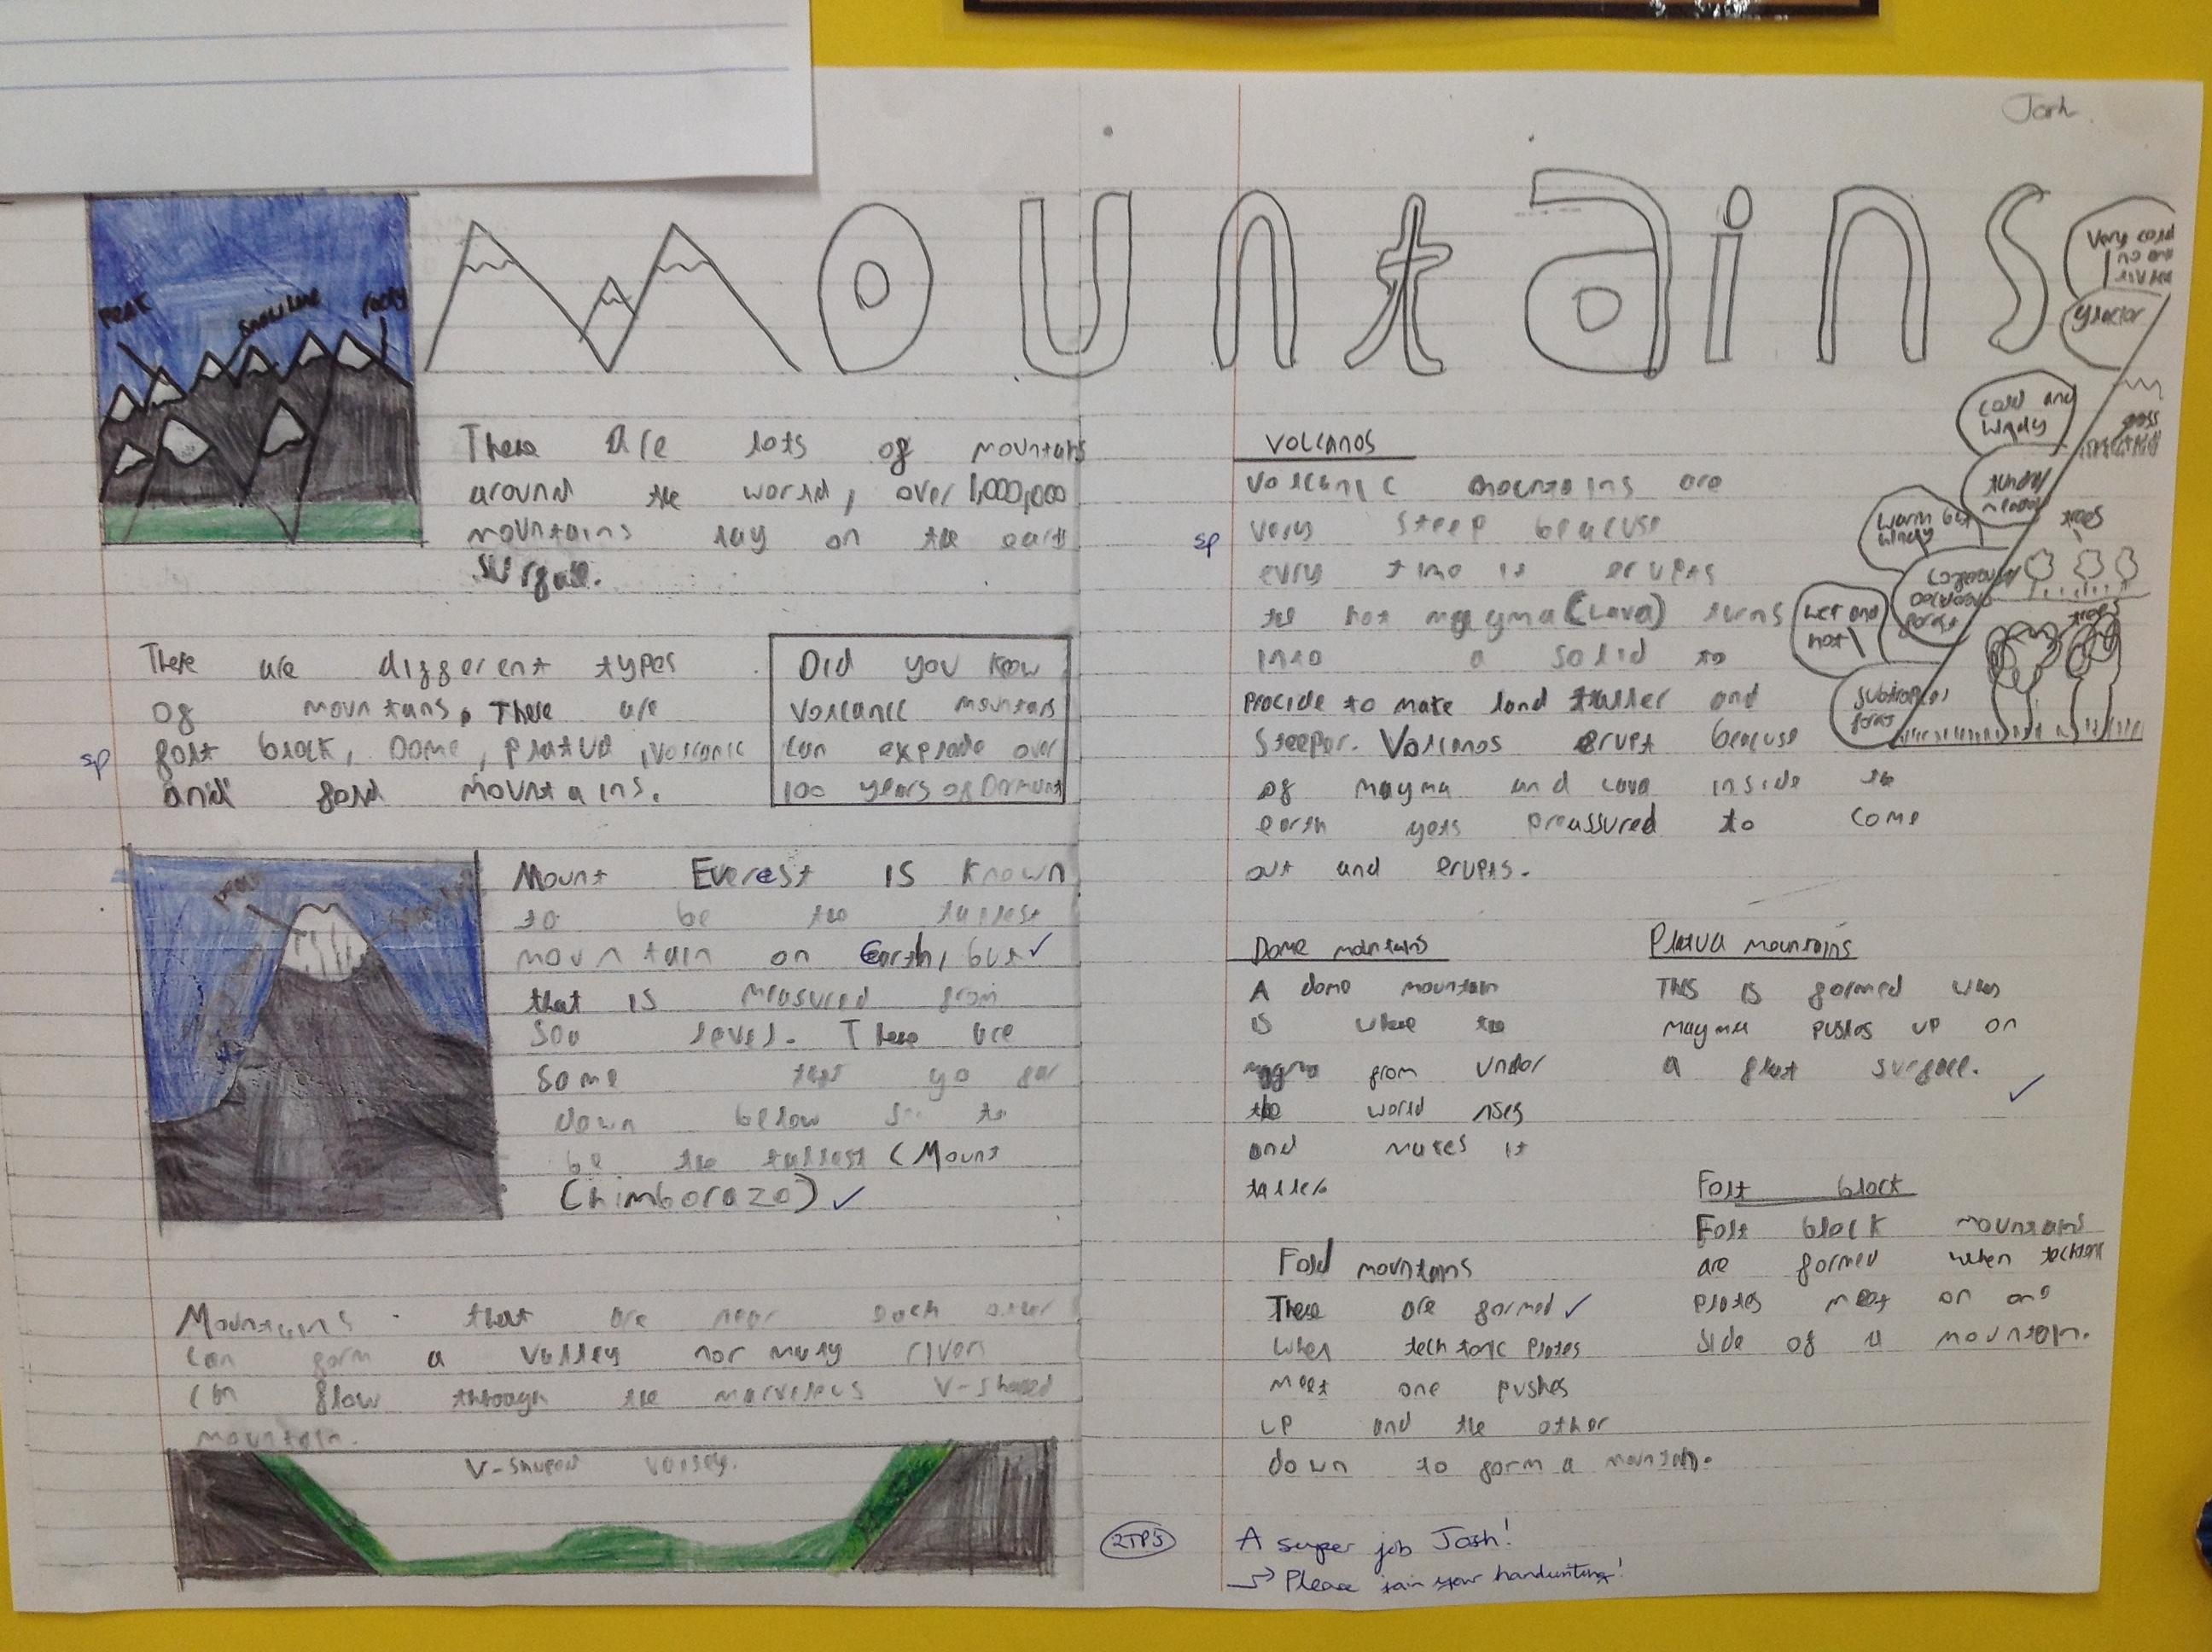 Josh.
Mountains
Peak
Snowline
rocky
There are lots of mountans
around the world, over 1,000,000
mountains lay on the earth
surface.
There are different types
of mountans. There are
folt block, Dome, platua, volcanic
sp
and fold mountains.
Did you know
volcanic mountans
can explode over
100 years of Dormunt
Mount Everest is known
to be the tallest
mountain on Earth, but ✓
that is measured from
sea level. There are
some that go far
down below sea to
be the tallest (Mount
Chimborazo) ✓
Mountains that are near each other
can form a valley nor many rivers
can flow through the marvelous V-shaped
mountain.
V-shaped valley.
Volcanos
Volcanic mountains are
very steep beacuse
sp
evry time it erupts
the hot magma (Lava) turns
into a solid to
procide to make land taller and
steeper. Volcanos erupt beacuse
of magma and lava inside the
earth gets preassured to come
out and erupts.
Very cold
no one
glacier
cold and
windy
warm but
windy
trees
wet and
hot
trees
forest
Dome mountains
A dome mountain
is where the
magma from under
the world rises
and makes it
taller
Platua mountains
This is formed when
magma pushes up on
a flat surface.
✓
Fold mountains
There are formed ✓
when techtonic plates
meet one pushes
up and the other
down to form a mountain.
Folt block
Folt block mountains
are formed when techtonic
plates meet on one
side of a mountain.
2TPS
A super job Josh!
→ Please join your handwriting!